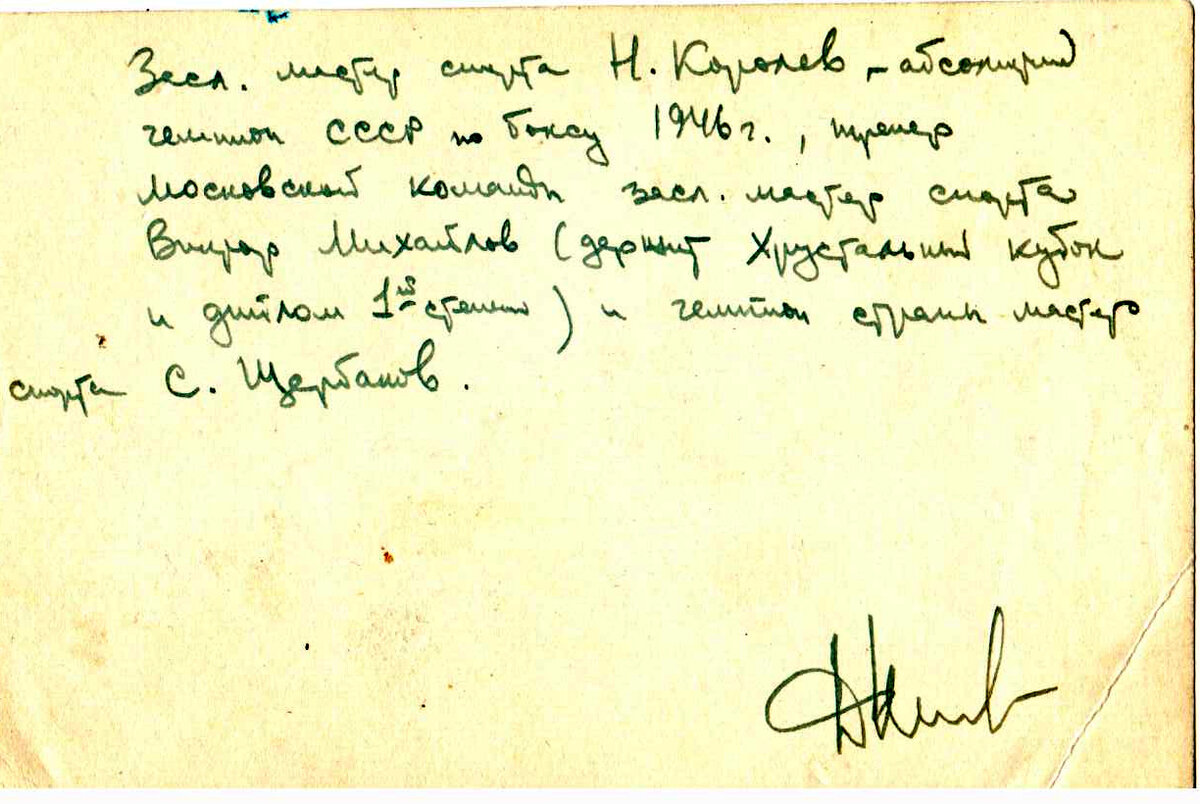 Засл. мастер спорта Н. Королев – абсолютный
чемпион СССР по боксу 1946 г., тренер
московской команды засл. мастер спорта
Виктор Михайлов (держит Хрустальный кубок
и диплом 1ой степени) и чемпион страны мастер
спорта С. Щербаков.